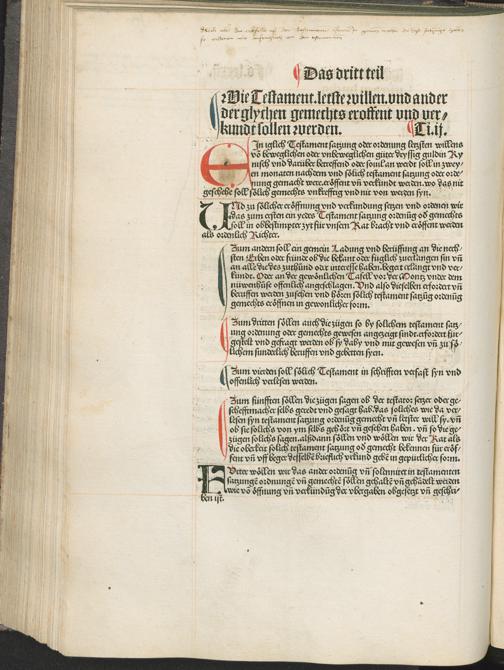 Das dritt teil
Wie Testament. letste willen. vnd ander
der glychen gemechts eroffent vnd ver⸗
kundt sollen werden. Ti. ij.
Ein iglich Testament satzung oder ordenung letzsten willens
vō beweglichen oder vnbeweglichen güter dryssig guldin Ry
nisch vnd darüber betreffend oder souil an werdt soll in zwey⸗
en monaten nachdem vnd sölich testament satzung oder orde⸗
nung gemacht were. eröffent vn̄ verkundt werden. wo das nit
geschehe soll sölich gemechts vnkrefftig vnd nit von werden syn.
Vnd zu sölicher eröffnung vnd verkundung setzen vnd ordenen wir
das zum ersten ein yedes Testament satzung ordenūg od gemechts
soll in obbestimpter zyt für vnsern Rat bracht vnd eröffent werden
als ordenlich Richter.
Zum andern soll ein gemein Ladung vnd berüffung an die nech⸗
sten Erben oder fründe ob die bekant oder füglich zuerlangen sin vn̄
an alle die das zuthünd oder interesse haben. beget erlangt vnd ver⸗
kundt. Oder an der gewönlichen Tafell vor der Montz vnder dem
nüwenhuse offentlich angeschlagen. Vnd also dieselben erfordert vn̄
berüffen werden zusehen vnd hören sölich testament satzūg ordenūg
gemechts eröffnen in gewonlicher form.
Zum dritten söllen auch die zügen so by solichem testament satz⸗
ung ordenung oder gemechts gewesen angezeigt sindt. erfordert für⸗
gestelt vnd gefragt werden ob sy daby vnd mit gewesen vn̄ zu sö⸗
lichem sunderlich beruffen vnd gebetten syen.
Zum vierden soll sölich Testament in schrifften verfast syn vnd
offenlich verlesen werden.
Zum fünfften söllen die zügen sagen ob der testator setzer oder ge⸗
schefftmacher selbs geredt vnd gesagt hab. das soliches wie da ver⸗
lesen syn testament satzung ordenūg gemecht vn̄ letster will sy. vn̄
ob sie solichs von ym selbs gehört vn̄ gesehen haben. vn̄ so die ge⸗
zügen solichs sagen. alßdann söllen vnd wöllen wir der Rat als
die oberkeit solich testament satzung od gemecht bekennen für eröf⸗
fent vn̄ vff beger desselbē brieflich vrkund gebē in gepürlicher form.
Furter wöllen wir das ander ordenūg vn̄ solennitet in testamenten
satzungē ordnungē vn̄ gemechtē söllen gehaltē vn̄ gehādelt werden
wie vō öffnung vn̄ verkundūg der vbergaben obgesetzt vn̄ geschri⸗
ben ist.